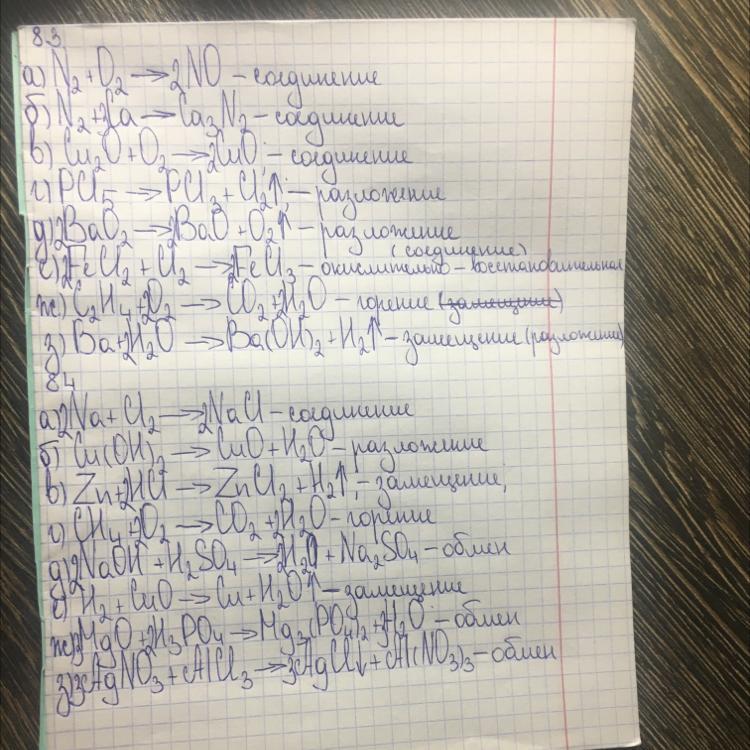 83
а) N₂ + O₂ → 2NO – соединение
б) N₂ + 3Ca → Ca₃N₂ – соединение
в) Cu₂O + O₂ → 2CuO; – соединение
г) PCl₅ → PCl₃ + Cl₂↑; – разложение
д) 2BaO₂ → 2BaO + O₂↑ – разложение
(соединение)
е) 2FeCl₂ + Cl₂ → 2FeCl₃ – окислительно – восстановительная
ж) C₂H₄ + 2O₂ → CO₂ + 2H₂O – горение (замещение)
з) Ba + 2H₂O → Ba(OH)₂ + H₂↑ – замещение (разложение)
84
а) 2Na + Cl₂ → 2NaCl – соединение
б) Cu(OH)₂ → CuO + H₂O – разложение
в) Zn + 2HCl → ZnCl₂ + H₂↑; – замещение;
г) CH₄ + 2O₂ → CO₂ + 2H₂O – горение
д) 2NaOH + H₂SO₄ → 2H₂O + Na₂SO₄ – обмен
е) H₂ + CuO → Cu + H₂O↑ – замещение
ж) 3MgO + 2H₃PO₄ → Mg₃(PO₄)₂ + 3H₂O – обмен
з) 3AgNO₃ + AlCl₃ → 3AgCl↓ + Al(NO₃)₃ – обмен